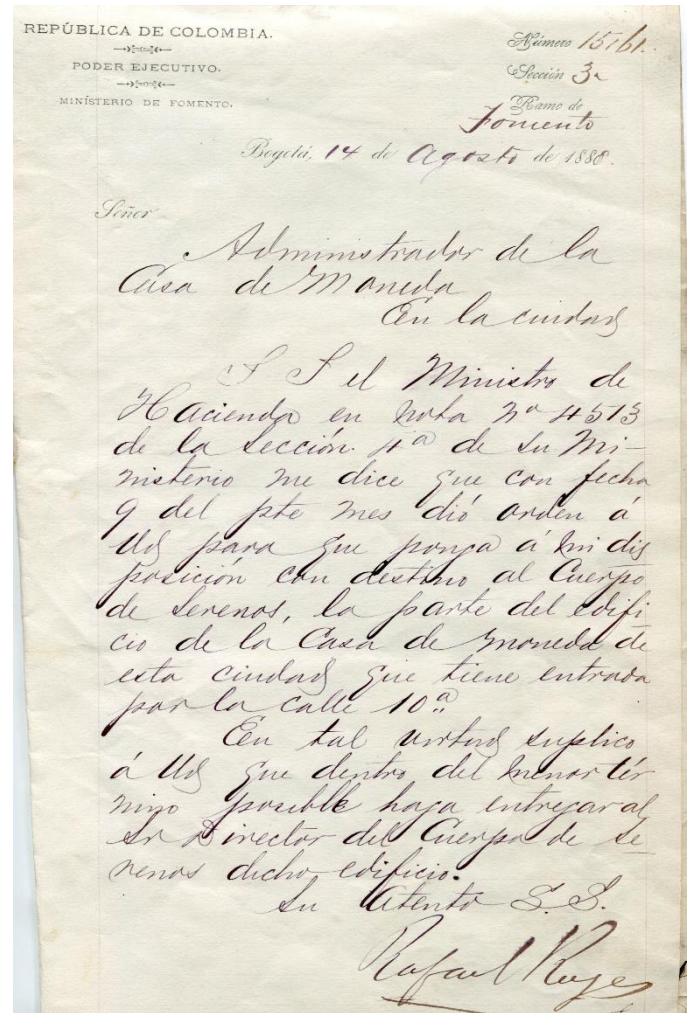 REPÚBLICA DE COLOMBIA.
PODER EJECUTIVO.
MINISTERIO DE FOMENTO.
Número 15161.
Sección 3a
Ramo de
Fomento
Bogotá, 14 de Agosto de 1888.
Señor
Administrador de la
Casa de Moneda
En la ciudad
S S el Ministro de
Hacienda en nota No 4513
de la Sección 4a de su Mi-
nisterio me dice que con fecha
9 del pte mes dió orden á
Ud para que ponga á mi dis
posición con destino al Cuerpo
de Serenos, la parte del edifi
cio de la Casa de Moneda de
esta ciudad que tiene entrada
por la calle 10a.
En tal virtud suplico
á Ud que dentro del menor tér
mino posible haga entregar al
Sr Director del Cuerpo de Se
renos dicho edificio.
Su Atento S. S.
Rafael Reyes